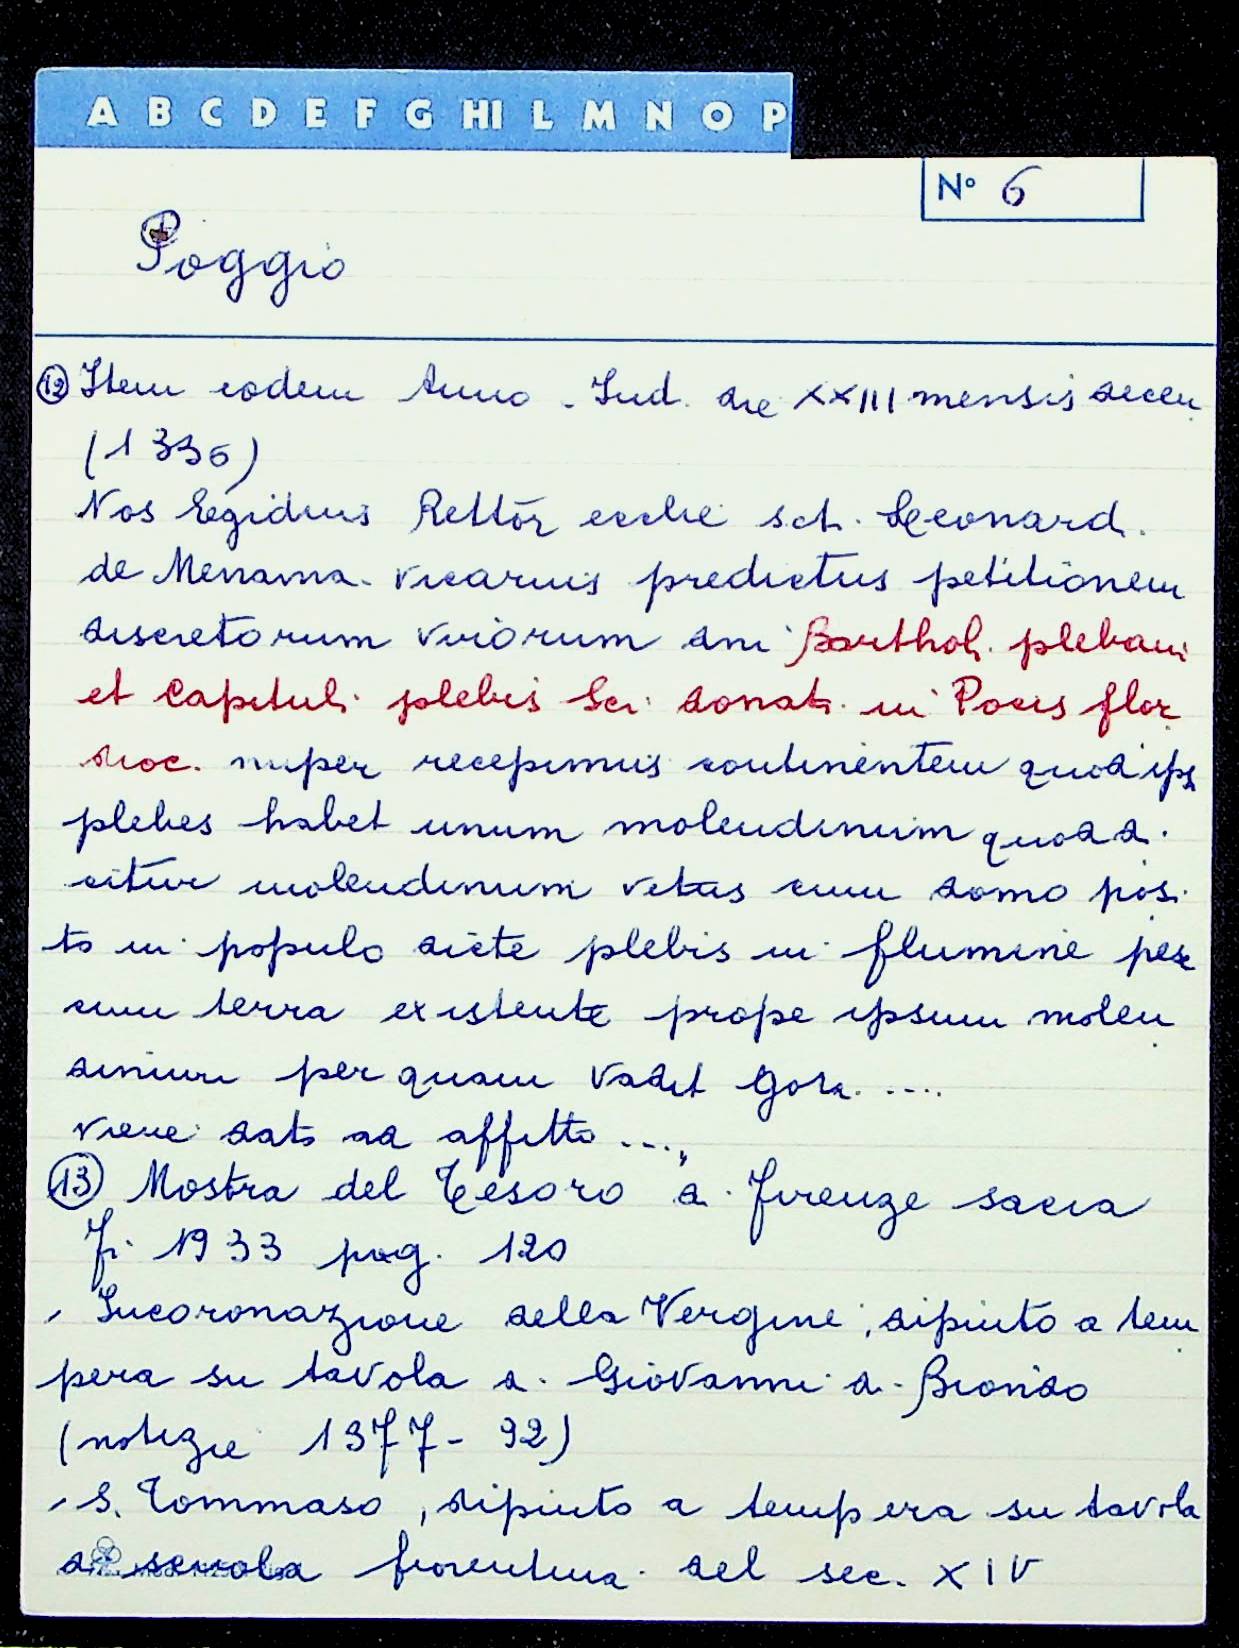 A B C D E F G HI L M N O P
N° 6
Poggio
⑫ Item eodem Anno. Ind. die XXIII mensis decem
(1336)
Nos Egidius Rettōr ecclie sct. Leonard.
de Menama. vicarius predictus petitionem
discretorum virorum dni Barthol. plebani
et Capituli plebis Sci donati in Pocis flor
dioc. nuper recepimus continentem quod ips
plebes habet unum molendinum quod di
citur molendinum vetus cum domo posi
to in populo dicte plebis in flumine pese
cum terra existente prope ipsum molen
dinum per quam vadit gora.....
viene dato ad affitto ....
⑬ Mostra del Tesoro di Firenze sacra
Fi. 1933 pag. 120
, Incoronazione della Vergine, dipinto a tem
pera su tavola di Giovanni di Biondo
(notizie 1377 - 92)
, S. Tommaso, dipinto a tempera su tavola
di scuola fiorentina del sec. XIV